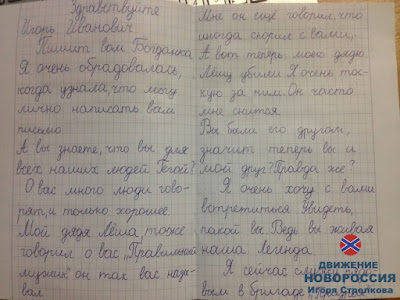 Здравствуйте
Игорь Иванович
Пишит вам Богданка
Я очень обрадовалась,
когда узнала, что могу
лично написать вам
письмо.
А вы знаете, что вы для
всех наших людей Герой?
О вас много люди гово-
рят, и только хорошее.
Мой дядя Лёша, тоже
говорил о вас „Правильный
мужик" он так вас назы-
вал.
Мне он ещё говорил, что
иногда спорил с вами.
А вот теперь моего дядю
Лёшу убили. Я очень тос-
кую за ним. Он часто
мне снится.
Вы были его другом,
значит теперь вы и
мой друг? Правда же?
Я очень хочу с вами
встретиться. Увидеть,
какой вы. Ведь вы живая
наша легенда.
Я сейчас служу
в бригаде
ДВИЖЕНИЕ
НОВОРОССИЯ
Игоря Стрелкова